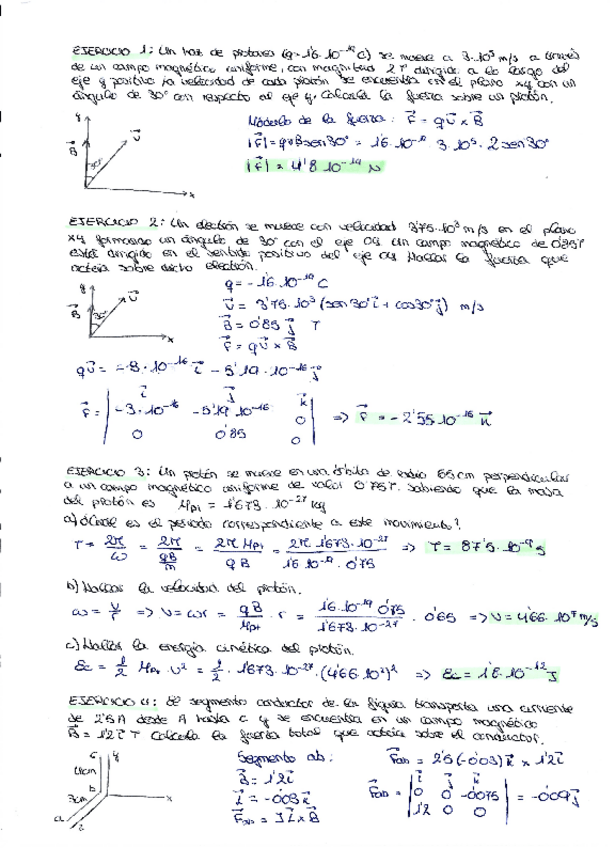 EJERCICIO 1: Un haz de protones (q=1'6·10⁻¹⁹ C) se mueve a 3·10⁵ m/s a través
de un campo magnético uniforme, con magnitud 2T dirigido a lo largo del
eje y positivo, la velocidad de cada protón se encuentra en el plano xy con un
ángulo de 30º con respecto al eje y. Calcula la fuerza sobre un protón.
y
Módulo de la fuerza: F⃗ = qv⃗ x B⃗
B⃗ 30º v⃗
|F⃗| = qvBsen30º = 1'6·10⁻¹⁹ · 3·10⁵ · 2 sen30º
x
|F⃗| = 4'8 10⁻¹⁴ N
EJERCICIO 2: Un electrón se mueve con velocidad 3'75·10³ m/s en el plano
xy formando un ángulo de 30º con el eje OY. Un campo magnético de 0'85T
está dirigido en el sentido positivo del eje OY. Hallas la fuerza que
actúa sobre dicho electrón.
q = -1'6·10⁻¹⁹ C
y
v⃗ = 3'75·10³ (sen30i⃗ + cos30j⃗) m/s
B⃗ 30º v⃗
B⃗ = 0'85 j⃗ T
x
F⃗ = qv⃗ x B⃗
qv⃗ = -3·10⁻¹⁶ i⃗ - 5'19·10⁻¹⁶ j⃗
i⃗ j⃗ k⃗
F⃗ = | -3·10⁻¹⁶ -5'19 10⁻¹⁶ 0 | => F⃗ = -2'55 10⁻¹⁶ k⃗
0 0'85 0
EJERCICIO 3: Un protón se mueve en una órbita de radio 65cm perpendicular
a un campo magnético uniforme de valor 0'75T. Sabiendo que la masa
del protón es Mp+ = 1'673·10⁻²⁷ kg
a) ¿Cuál es el periodo correspondiente a este movimiento?
T = 2π/ω = 2π/(qB/m) = 2π Mp+/qB = 2π 1'673·10⁻²⁷/1'6·10⁻¹⁹·0'75 => T = 8'75·10⁻⁸ s
b) Hallar la velocidad del protón.
ω = v/r => v = ωr = qB/Mp+ · r = 1'6·10⁻¹⁹ 0'75/1'673·10⁻²⁷ · 0'65 => v = 4'66·10⁷ m/s
c) Hallar la energía cinética del protón.
Ec = 1/2 Mp+ · v² = 1/2 · 1'673·10⁻²⁷ · (4'66·10⁷)² => Ec = 1'8·10⁻¹² J
EJERCICIO 4: El segmento conductor de la figura transporta una corriente
de 2'5A desde A hasta C y se encuentra en un campo magnético
B⃗ = 1'2i⃗ T Calcula la fuerza total que actúa sobre el conductor.
c y
Segmento ab:
F⃗ab = 2'5(-0'03)k⃗ x 1'2i⃗
4cm
B⃗ = 1'2i⃗
b
3cm x
l⃗ = -0'03 k⃗
i⃗ j⃗ k⃗
F⃗ab = | 0 0 -0'075 | = -0'09j⃗
1'2 0 0
a z
F⃗ab = I l⃗ x B⃗